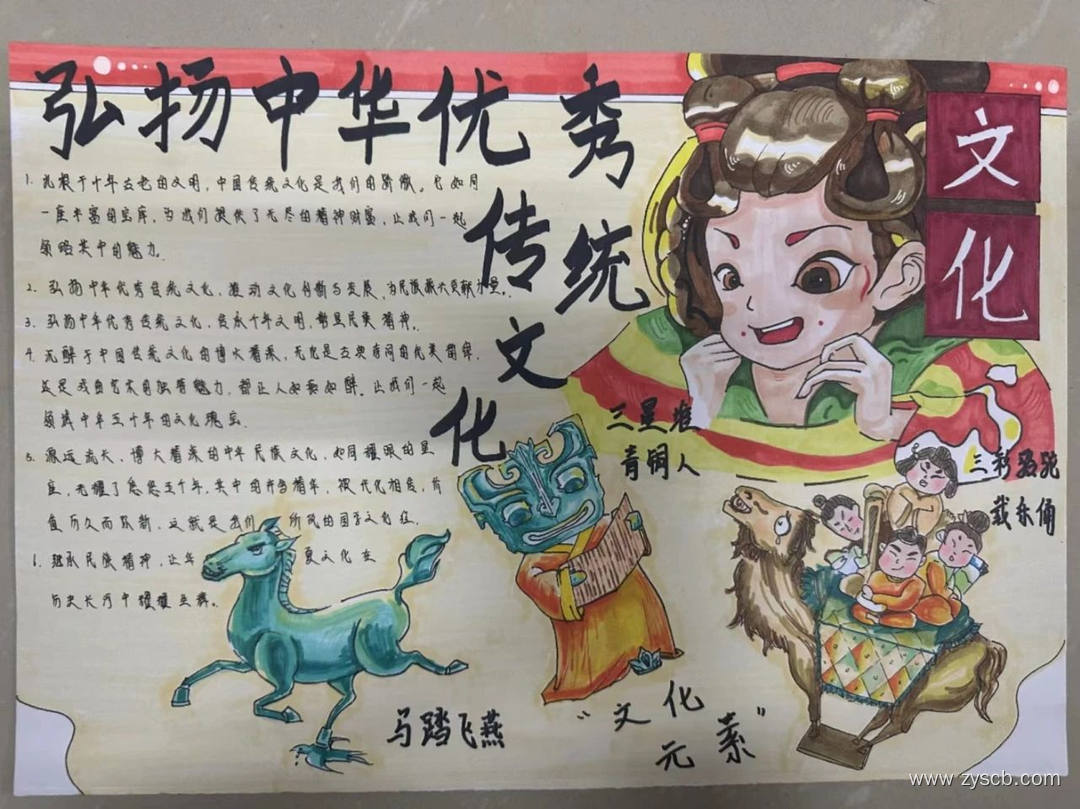 弘扬中华优秀
传统
文
化
文
化
1. 扎根于千年古老的文明，中国传统文化是我们的骄傲。它如同
一座丰富的宝库，为我们提供了无尽的精神财富，让我们一起
领略其中的魅力。
2. 弘扬中华优秀传统文化，推动文化创新与发展，为民族振兴贡献力量。
3. 弘扬中华优秀传统文化，传承千年文明，彰显民族精神。
4. 沉醉于中国传统文化的博大精深，无论是古典诗词的优美韵律，
还是戏曲艺术的独特魅力，都让人如痴如醉。让我们一起
领域中华五千年的文化瑰宝。
5. 源远流长、博大精深的中华民族文化，如同耀眼的星
座，光耀了悠悠五千年，其中的
值历久而弥新，这就是我们 所说的国学文化在。
继承民族精神，让华 夏文化在
历史长河中熠熠生辉。
三星堆
青铜人
三彩骆驼
载乐俑
马踏飞燕
“文化
元素”
www.zyscb.com